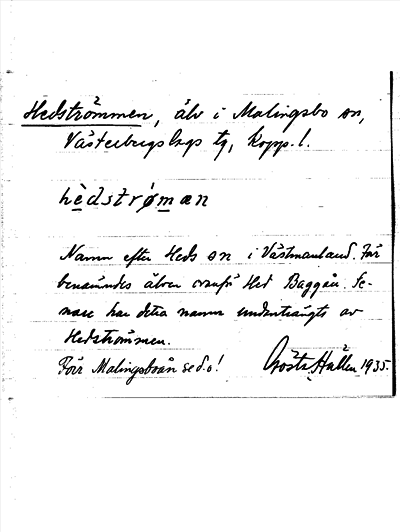 Hedströmmen, älv i Malingsbo sn,
Västerbergslags tg, Kopp. l.
hèdstrǿman
Namn efter Heds sn i Västmanland. Förr
benämndes älven ovanför Hed Baggån. Se-
nare har detta namn undanträngts av
Hedströmmen.
Förr Malingsboån se d.o!
Gösta Hallén 1935.